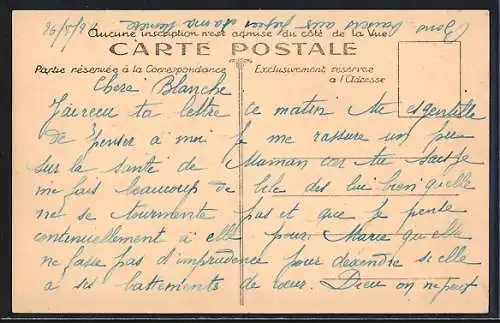 Bons baisers aux frères et a ma tante
26/5/24
Aucune inscription n'est admise du côté de la Vue
CARTE POSTALE
Partie réservée à la Correspondance
Exclusivement réservée
à l'Adresse
Chere Blanche
J'ai reçu ta lettre ce matin tu es gentille
de penser à moi Je me rassure un peu
sur la santé de Maman car ta
me fais beaucoup de bile dis lui bien quelle
ne se tourmente pas et que Je pense
continuellement à elle pour Marie qu'elle
ne fasse pas d'imprudence pour descendre si elle
a ses battements de cœur. Dieu on ne peut